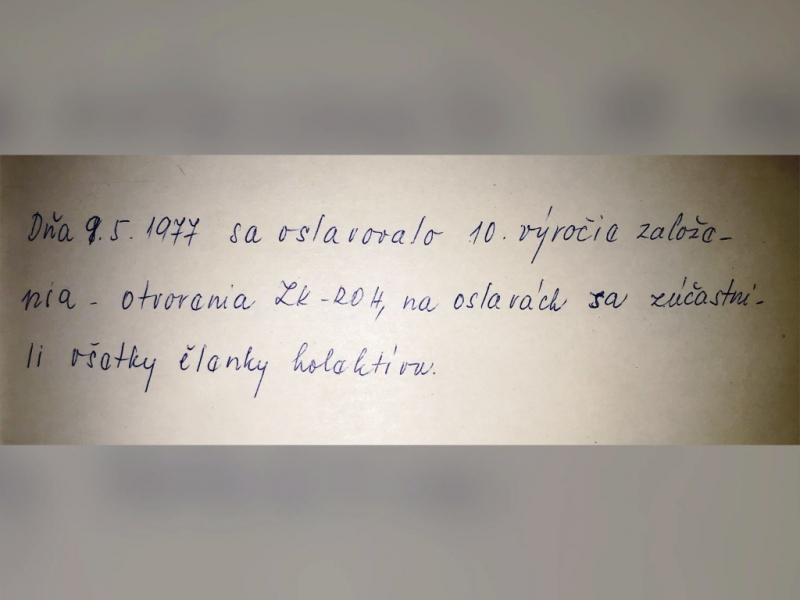 Dňa 9.5.1977 sa oslavovalo 10. výročie založe-
nia - otvorenia ZK-ROH, na oslavách sa zúčastni-
li všetky členky kolektívu.